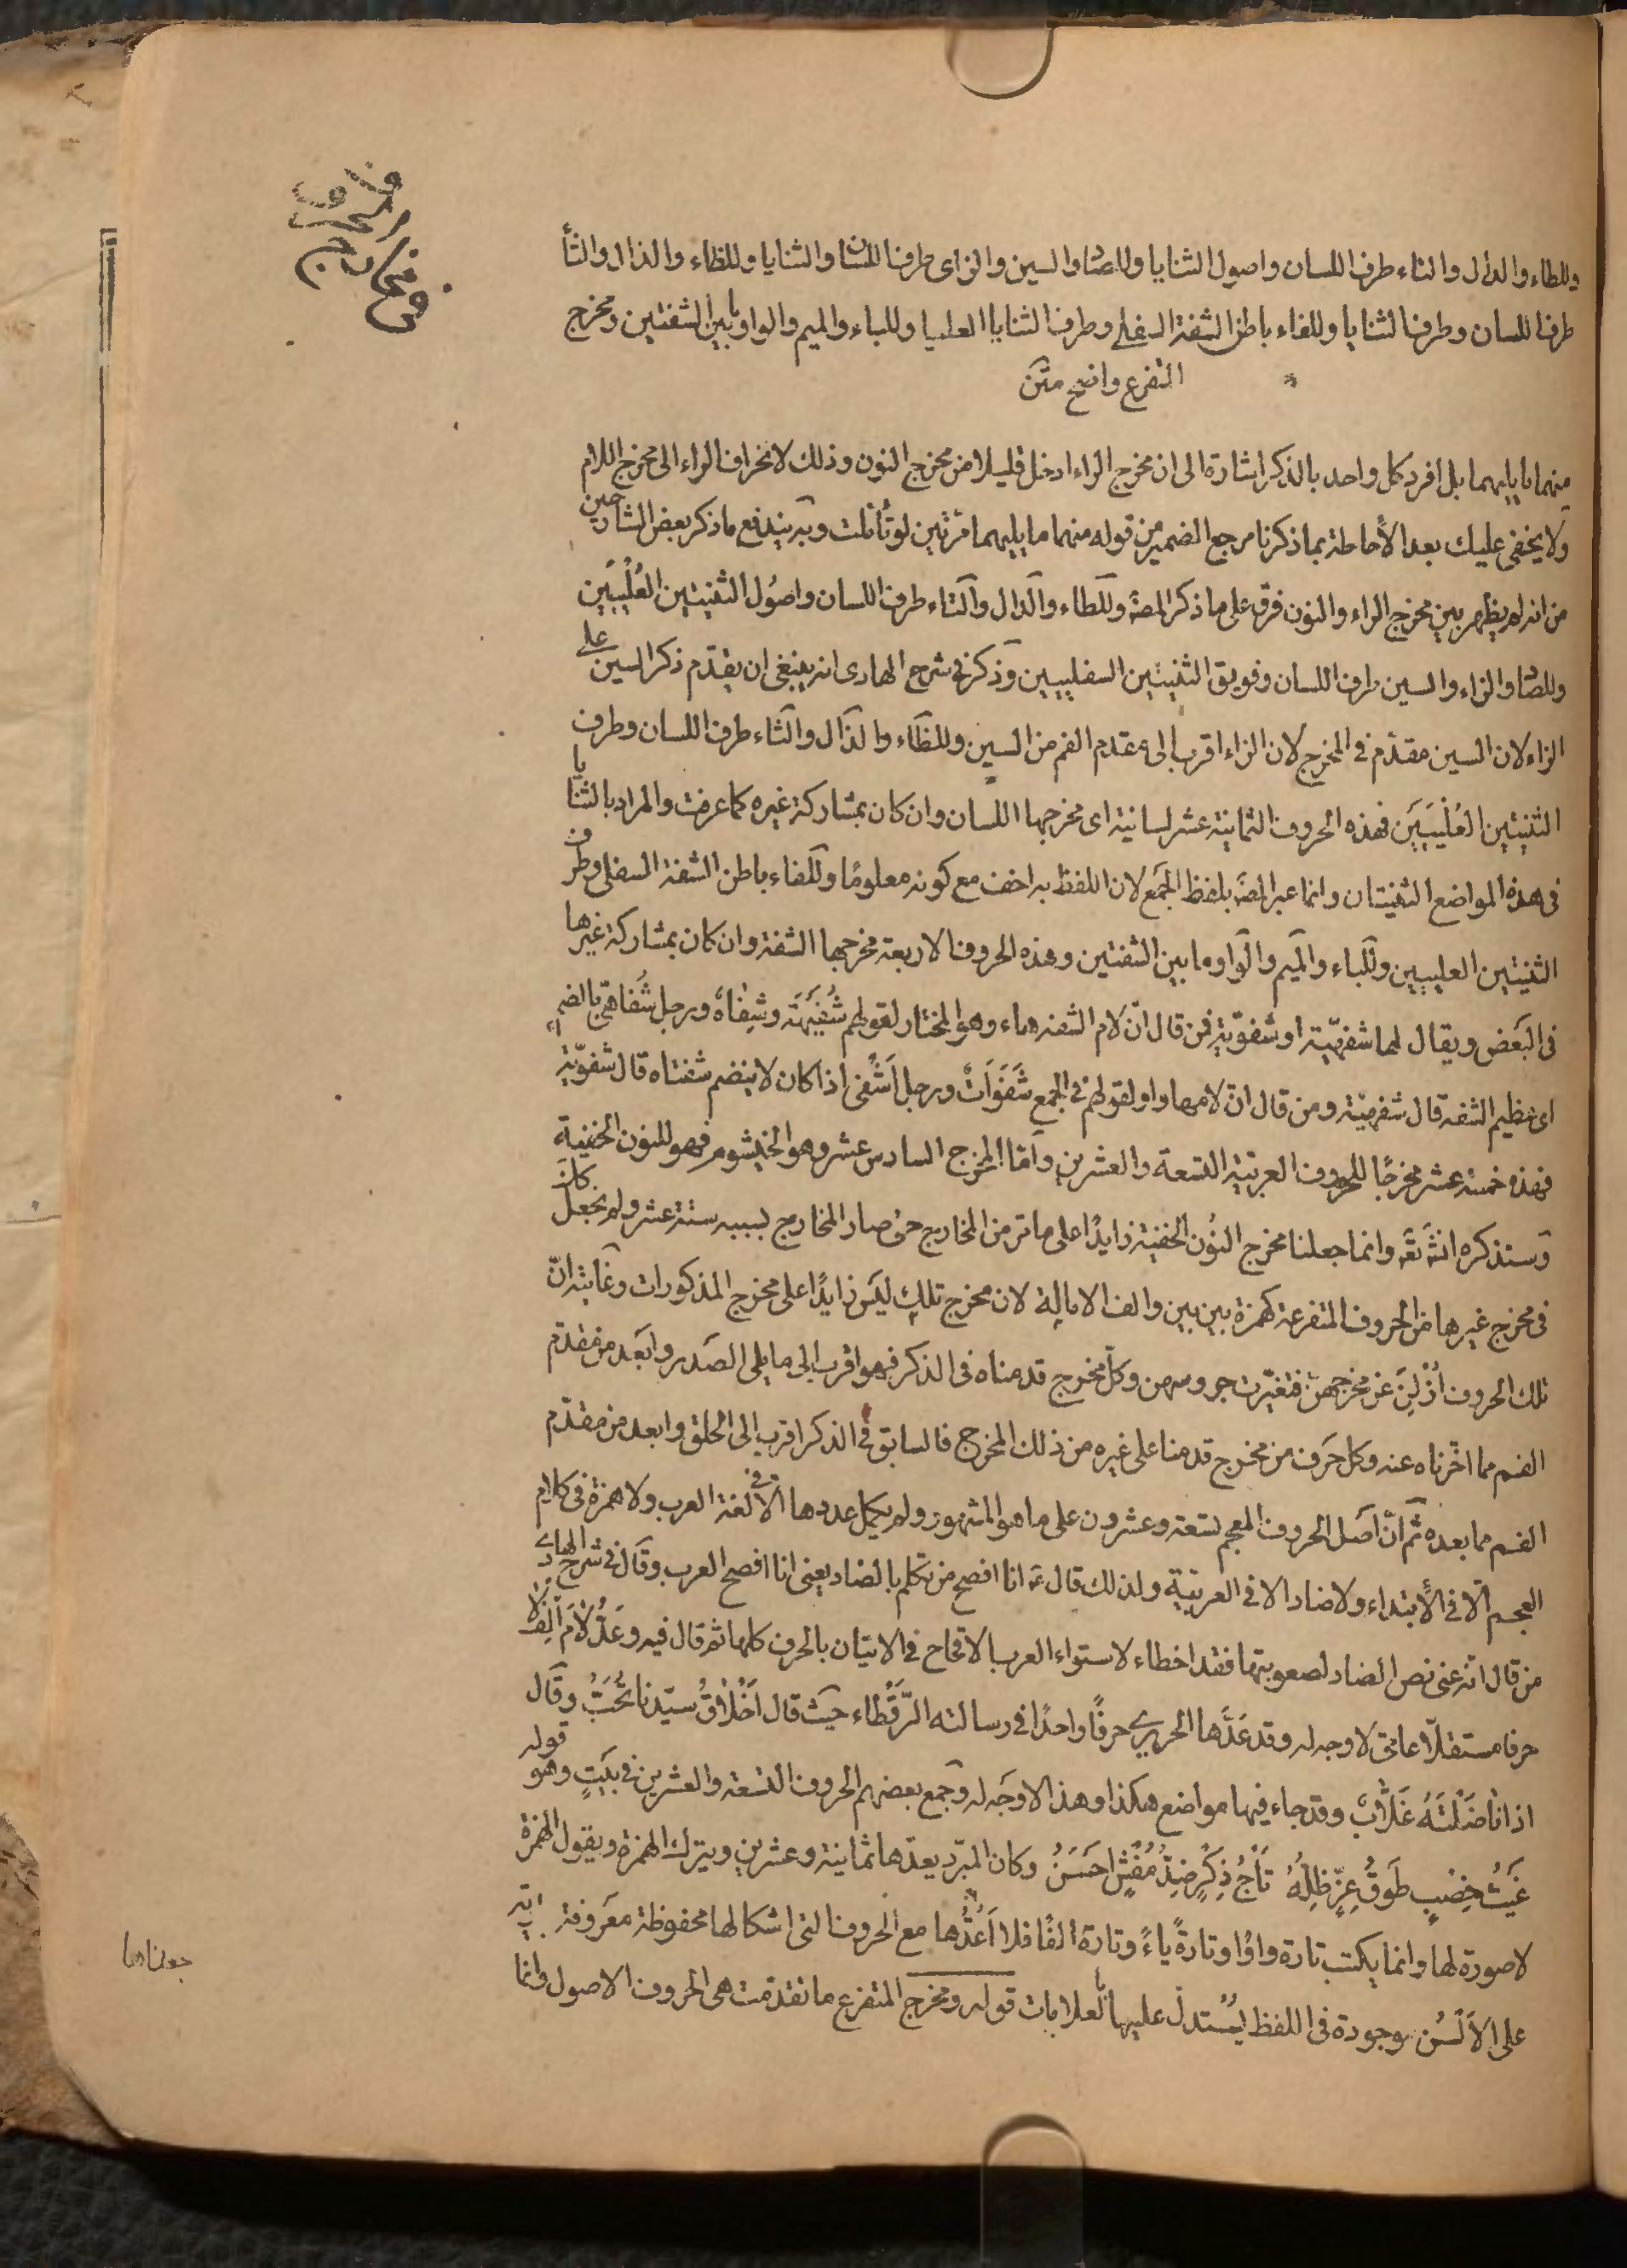 في مخارج
الحروف
وللطاء والدال والتاء طرف اللسان واصول الثنايا وللصاد والسين والزاى طرف اللسان والثنايا وللظاء والذال والثأ
طرف اللسان وطرف الثنايا وللفاء باطن الشفة السفلى وطرف الثنايا العليا وللباء والميم والواو ما بين الشفتين ومخرج
المتفرع واضح متن
منهما ما يليهما بل افرد كل واحد بالذكر اشارة الى ان مخرج الراء ادخل قليلا من مخرج النون وذلك لانحراف الراء الى مخرج اللام
ولا يخفى عليك بعد الأحاطة بما ذكرنا مرجع الضمير من قوله منهما ما يليهما مرّتين لو تأمّلت وبه يندفع ما ذكر بعض الشارحين
من انه لم يظهر بين مخرج الراء والنون فرق على ما ذكر المصّ وللطاء والدال والتاء طرف اللسان واصُول الثنيتين العُلْيَيَين
وللصاد والزاء والسين طرف اللسان وفويق الثنيتين السفليين وذكر في شرح الهادى انه ينبغى ان يقدّم ذكر السين على
الزاء لان السين مقدّم في المخرج لان الزاء اقرب الى مقدم الفم من السين وللظاء والذال والثاء طرف اللسان وطرف
الثنيتين العُلْيَيَين فهذه الحروف الثمانية عشر لسانية اى مخرجها اللسان وان كان بمشاركة غيره كما عرفت والمراد بالثنايا
فى هذه المواضع الثنيتان وانما عبر المصّ بلفظ الجمع لان اللفظ به اخف مع كونه معلومًا وللفاء باطن الشفة السفلى وطرف
الثنيتين العليين وللباء والميم والواو ما بين الشفتين وهذه الحروف الاربعة مخرجها الشفة وان كان بمشاركة غيرها
فى البعض ويقال لها شفهيّة او شفويّة فمن قال انّ لام الشفه هاء وهو المختار لقولهم شُفَيْهَة وشِفاهٌ ورجل شُفاهىّ بالضم
اى عظيم الشفة قال شفهيّة ومن قال انّ لامها واو لقولهم في الجمع شَفَوَاتٌ ورجل اَشْفى اذا كان لا ينضم شفتاه قال شفويّة
فهذه خمسة عشر مخرجًا للحروف العربيّة التسعة والعشرين وامّا المخرج السادس عشر وهو الخيشوم فهو للنون الخفيّة
وستذكره انشَ تعَ وانما جعلنا مخرج النُون الخفيّة زايدًا على ما مر من المخارج حتى صار المخارج بسببه ستة عشر ولم نجعل كان
فى مخرج غيرها من الحروف المتفرعة كهمزة بين بين والف الامالة لان مخرج تلك ليس زايدًا على مخرج المذكورات وغايته انّ
تلك الحروف اُزْلِنَ عن مخرجهنّ فتغيّرت جروسهن وكلّ مخرج قدمناه فى الذكر فهو اقرب الى ما يلى الصَدر وابَعد من مقدّم
الفم مما اخّرناه عنه وكل حَرف من مخرج قدمنا على غيره من ذلك المخرج فالسابق فى الذكر اقرب الى الحلق وابعد من مقدّم
الفم مما بعده ثم انّ اصَل الحروف المعجم تسعة وعشرون على ما هو المشهور ولم يكمل عددها الّا فى لغة العرب ولا همزة فى كلام
العجم الّا فى الأبتداء ولا ضاد الا فى العربيّة ولذلك قال عَ انا افصح من تكلم بالضاد يعنى انا افصح العرب وقال في شرح الهادى
من قال انّه عنى نص الضاد لصعوبتها فقد اخطاء لاستواء العرب الاقحاح فى الاتيان بالحرف كلها ثم قال فيه وعَدُّ لاَمَ اَلِف
حرفا مستقلاّ عامىّ لا وجه له وقد عَدَّها الحريرى حرفًا واحدًا فى رسالته الرَّقْطاء حيث قال اَخْلاقُ سيّدنا تُحَبُّ وقال
اذا ناضَلْتَهُ غَلَّابٌ وقد جاء فيها مواضع هكذا وهذا لا وجَه له وجمع بعضهم الحروف التسعة والعشرين فى بَيتٍ وهو قوله
غَيْثُ خِصْبٍ طَوقُ عِزِّ ظِلِهُ تَاْجُ ذِكْرٍ ضِدُّ مُفْشٍ احَسَنُ وكان المبرّد يعدّها ثمانية وعشرين ويترك الهمزة ويقول الهمزة
لا صورة لها وانما يكتب تارة واوًا وتارةً ياءً وتارة الفًا فلا اَعُدُّها مع الحروف التى اشكالها محفوظة معروفة
على الاَلسُن موجودة فى اللفظ يُستدلّ عليها بالعلامات قوله ومخرج المتفرع ما تقدّمت هى الحروف الاصول وانما
جعلناها